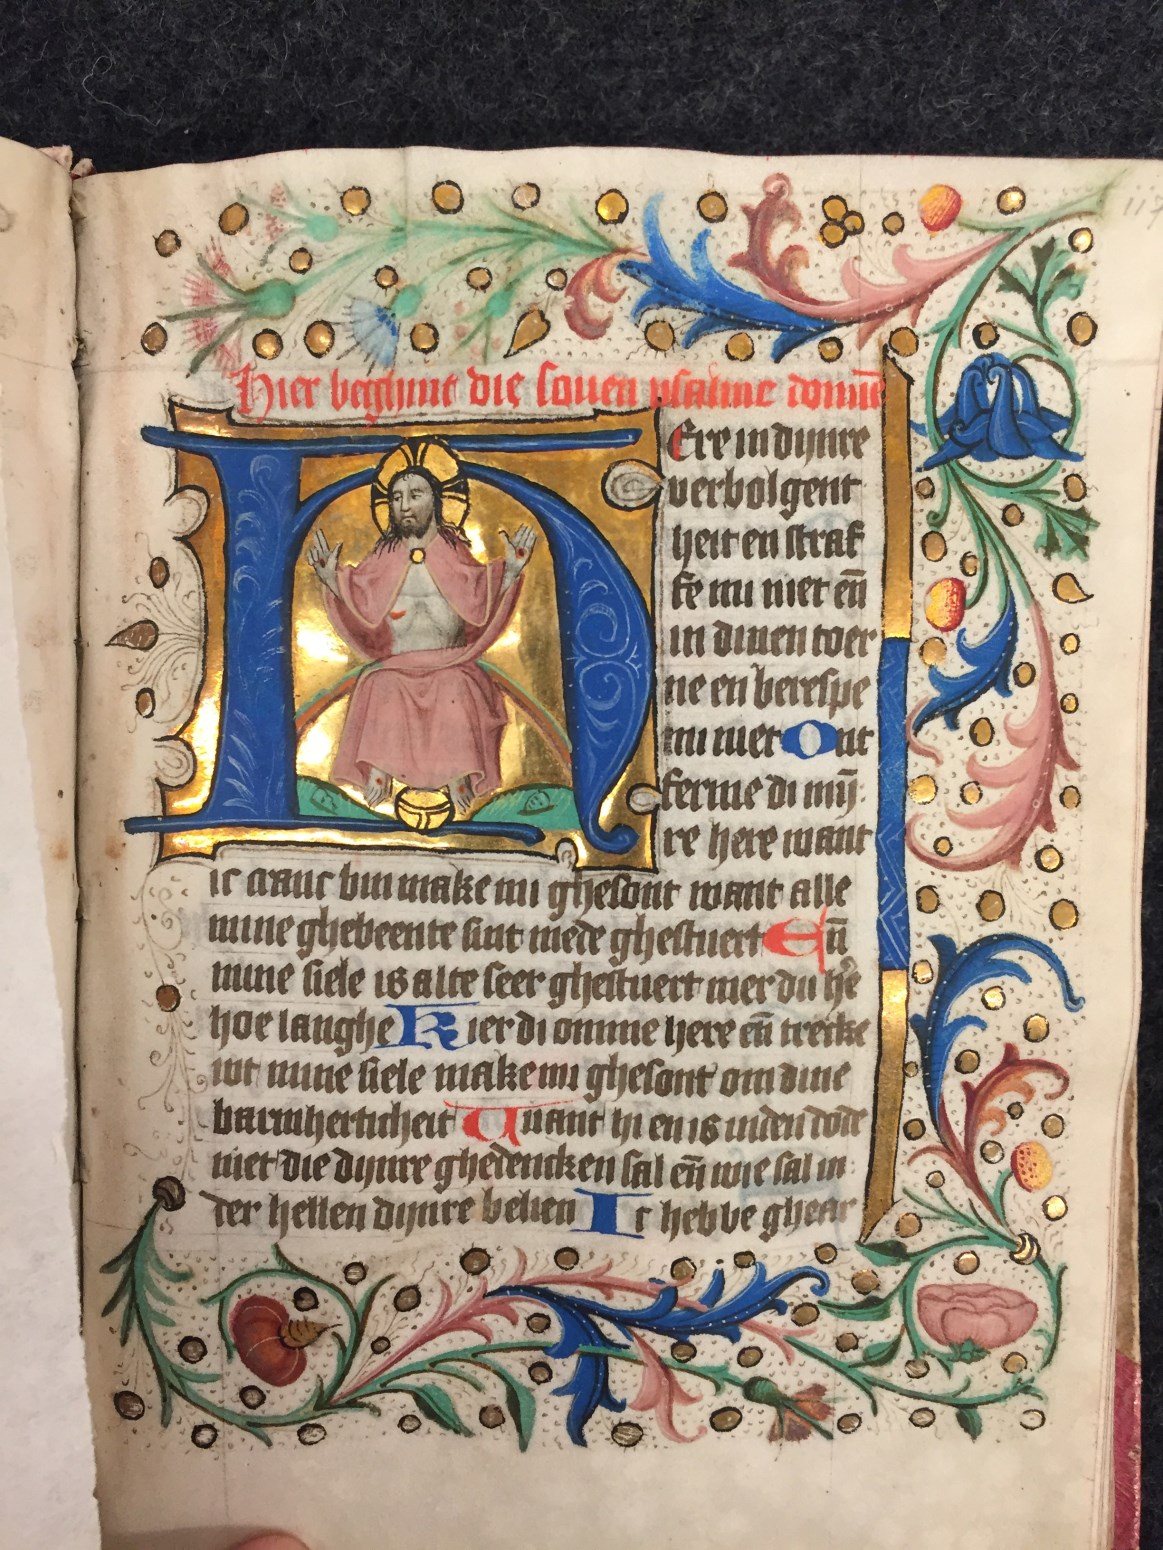 117
Hier beghint die souen psalme domīe
HEre in dijnre
verbolgent
heit en straf
fe mi niet eñ
in dinen toer
ne en berespe
mi niet Ont
ferme di mij
re here want
ic cranc bin make mi ghesont want alle
mine ghebeente sint mede ghestuert Eñ
mine siele is alte seer ghestuert mer du hr̄e
hoe langhe Kier di omme here eñ trecke
wt mine siele make mi ghesont om dine
barmherticheit Want hi en is inden dode
niet die dijnre ghedencken sal eñ wie sal in
der hellen dijnre belien Ic hebbe ghear